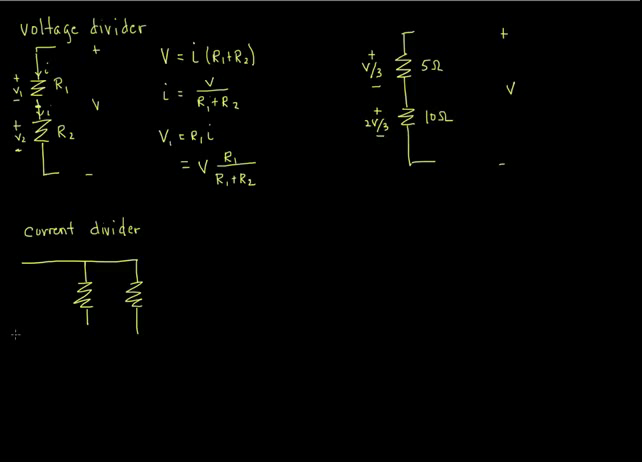 voltage divider
+
i
+
V₁
−
R₁
i
V
+
V₂
−
R₂
−
V = i (R₁+R₂)
i = V / R₁+R₂
V₁ = R₁ i
= V R₁ / R₁+R₂
+
+
V/3
−
5Ω
V
+
2V/3
−
10Ω
−
current divider